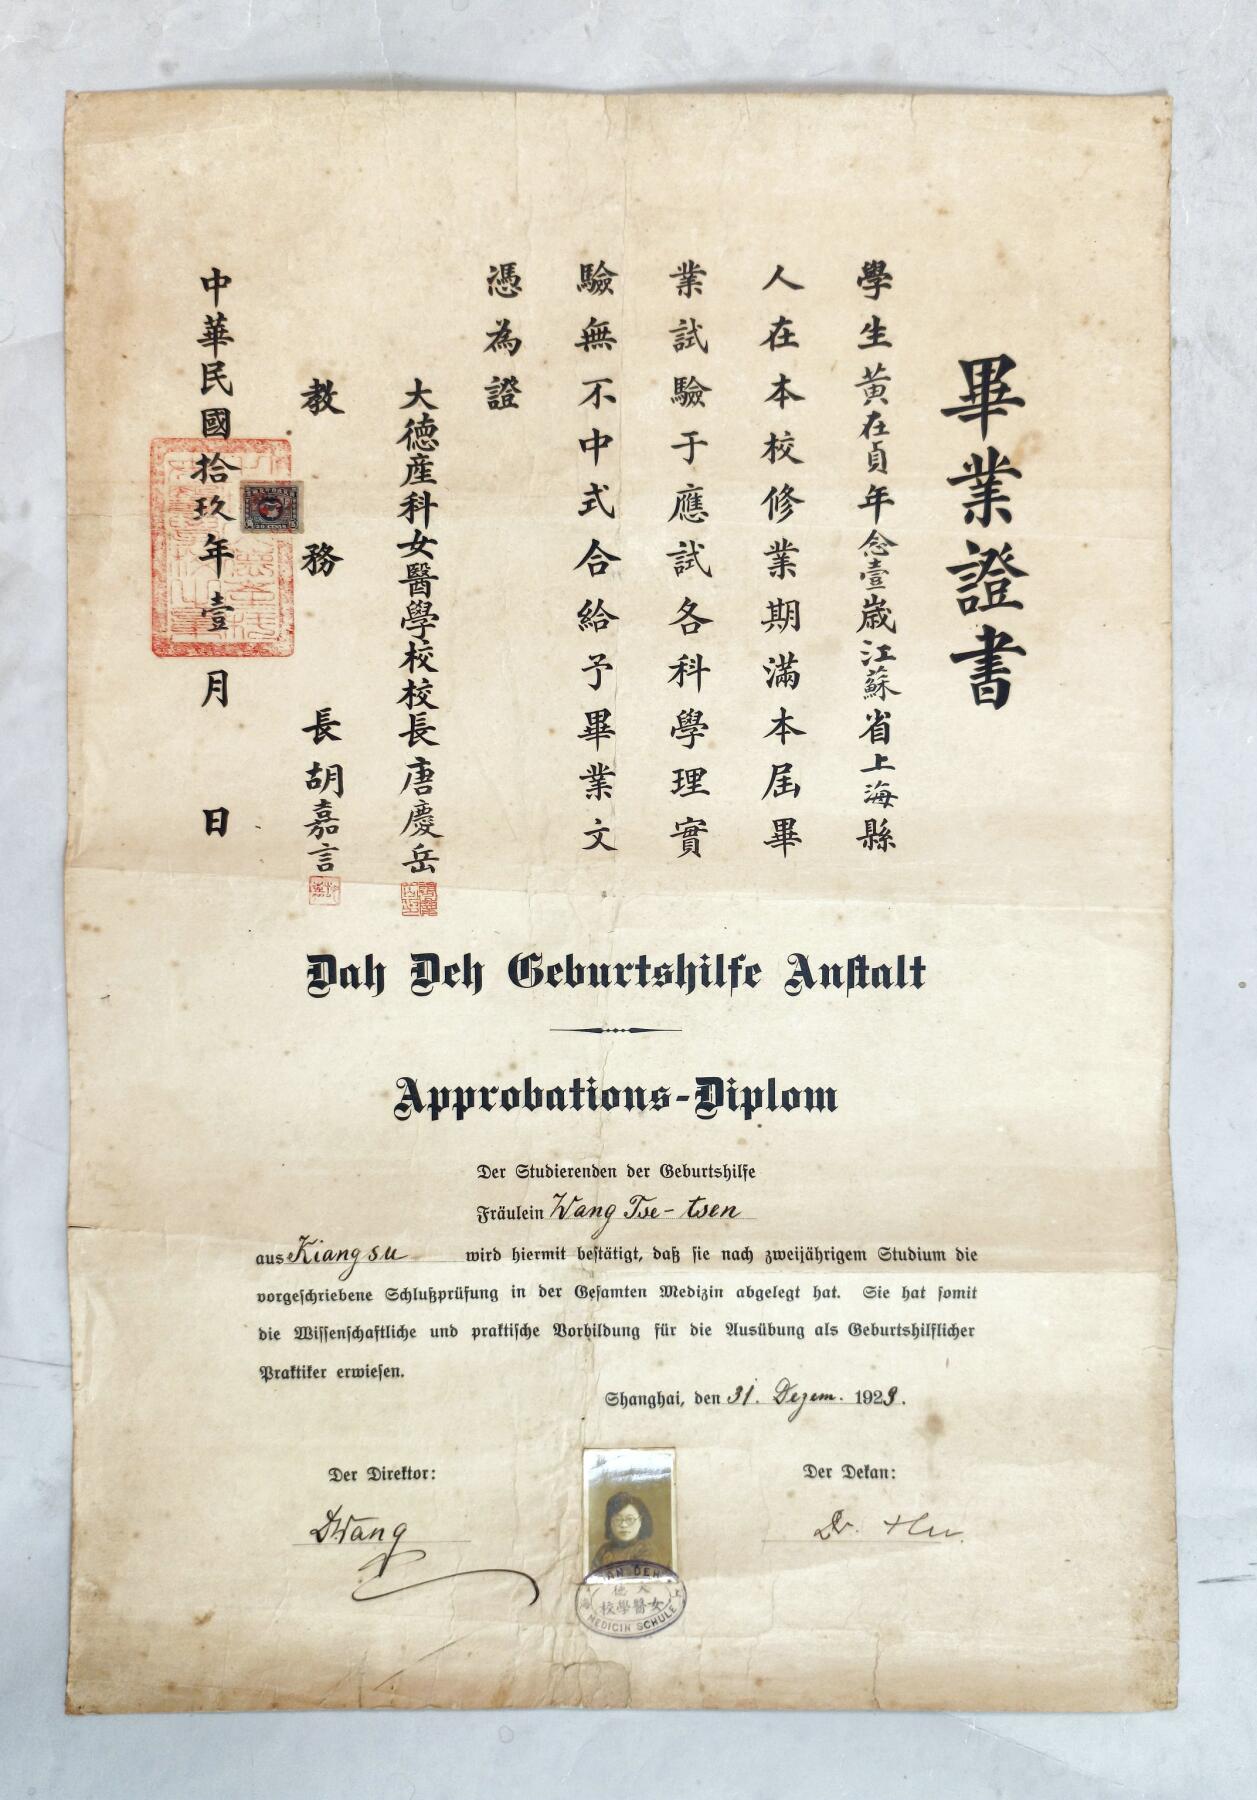 畢業證書
學生黃在貞年念壹歲江蘇省上海縣
人在本校修業期滿本屆畢
業試驗于應試各科學理實
驗無不中式合給予畢業文
憑為證
大德產科女醫學校校長唐慶岳
教務長胡嘉言
中華民國拾玖年壹月日
Dah Deh Geburtshilfe Anstalt
Approbations-Diplom
Der Studierenden der Geburtshilfe
Fräulein Wang Tse-tsen
aus Kiangsu wird hiermit bestätigt, daß sie nach zweijährigem Studium die
vorgeschriebene Schlußprüfung in der Gesamten Medizin abgelegt hat. Sie hat somit
die Wissenschaftliche und praktische Vorbildung für die Ausübung als Geburtshilflicher
Praktiker erwiesen.
Shanghai, den 31. Dezem. 1929.
Der Direktor:
Der Dekan:
Dr. Hu.
DAH DEH
大德
上海
女醫學校
MEDICIN SCHULE